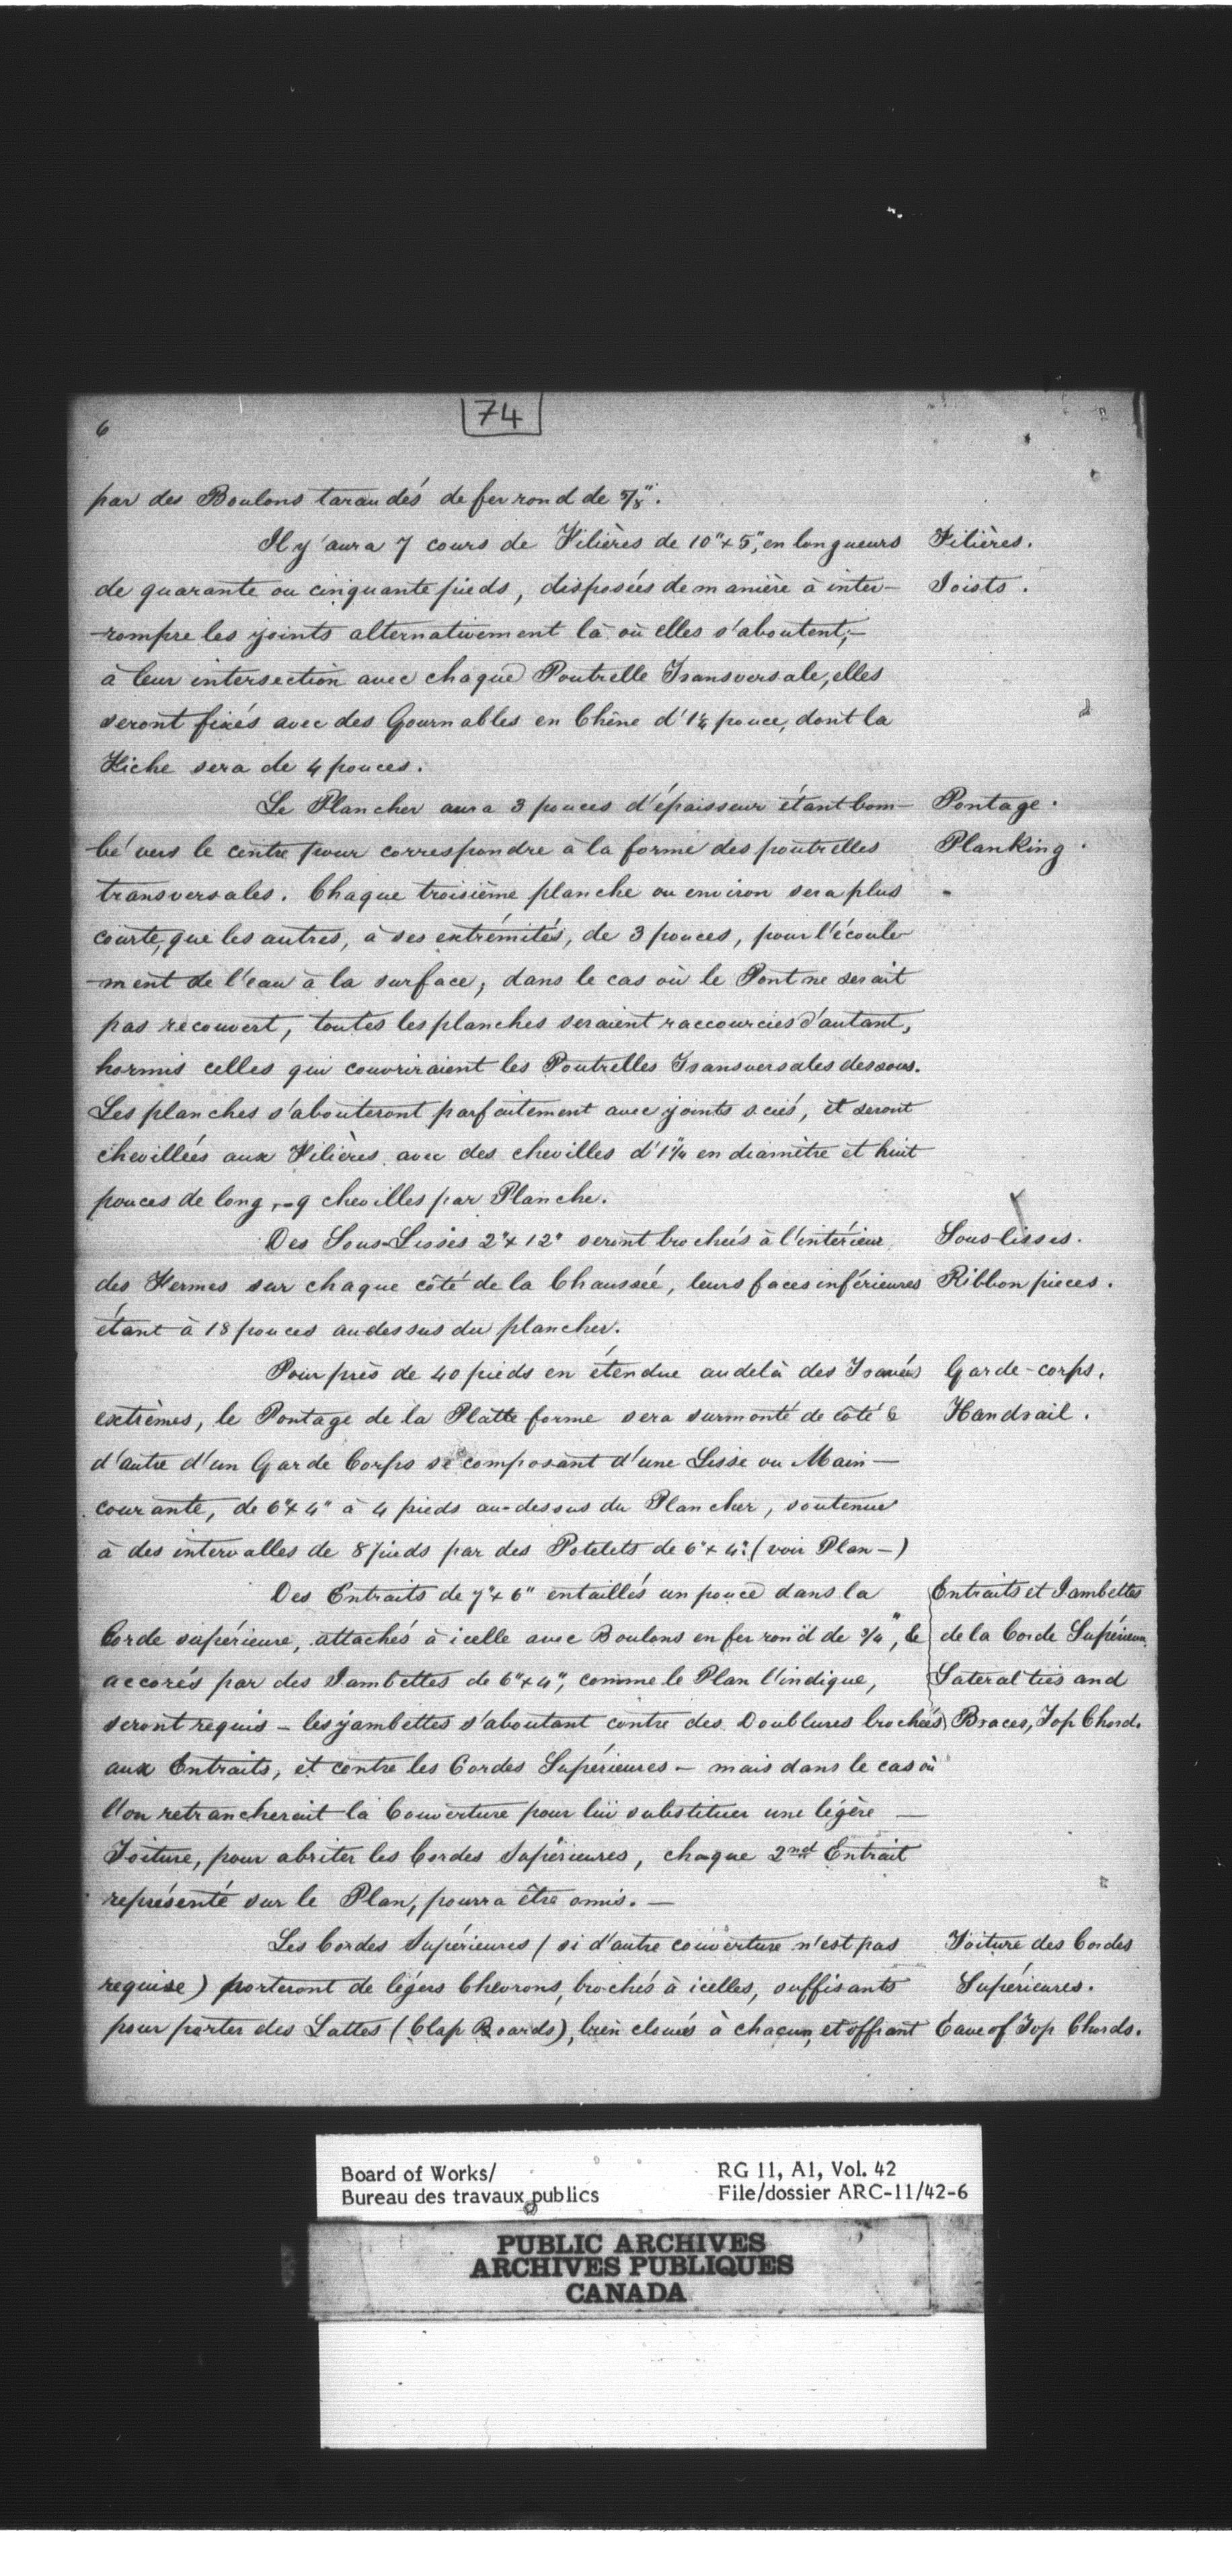 6
74
par des Boulons taraudés de fer rond de 5/8".
Il y aura 7 cours de Filières de 10"x5", en longueurs
Filières.
de quarante ou cinquante pieds, disposées de manière à inter-
Joists.
-rompre les joints alternativement là où elles s'aboutent;-
à leur intersection avec chaque Poutrelle Transversale, elles
seront fixés avec des Gournables en Chêne d'1¼ pouce, dont la
Fiche sera de 4 pouces.
Le Plancher aura 3 pouces d'épaisseur étant bom-
Pontage.
-bé vers le centre pour correspondre à la forme des poutrelles
Planking.
transversales. Chaque troisième planche ou environ sera plus
courte, que les autres, à ses extrémités, de 3 pouces, pour l'écoule
-ment de l'eau à la surface, dans le cas où le Pont ne serait
pas recouvert, toutes les planches seraient raccourcies d'autant,
hormis celles qui couvriraient les Poutrelles Transversales dessous.
Les planches s'abouteront parfaitement avec joints sciés, et seront
chevillées aux Filières avec des chevilles d'1"¼ en diamètre et huit
pouces de long, - 9 chevilles par Planche.
Des Sous-Lisses 2"x12" seront brochées à l'intérieur
Sous-lisses.
des Fermes sur chaque côté de la Chaussée, leurs faces inférieures
Ribbon pieces.
étant à 18 pouces au dessus du plancher.
Pour près de 40 pieds en étendue au delà des Travées
Garde-corps.
extrèmes, le Pontage de la Platte forme sera surmonté de côté &
Handrail.
d'autre d'un Garde Corps se composant d'une Lisse ou Main-
courante, de 6"x4" à 4 pieds au-dessus du Plancher, soutenue
à des intervalles de 8 pieds par des Potelets de 6"x4". (voir Plan-)
Des Entraits de 7"x6" entaillés un pouce dans la
Entraits et Jambettes
Corde supérieure, attachés à icelle avec Boulons en fer rond de 3/4", &
de la Corde Supérieure.
accorés par des Jambettes de 6"x4", comme le Plan l'indique,
Lateral ties and
seront requis - les jambettes s'aboutant contre des Doublures brochées
Braces, Top Chord.
aux Entraits, et contre les Cordes Supérieures - mais dans le cas où
l'on retrancherait la Couverture pour lui substituer une légère -
Toiture, pour abriter les Cordes Supérieures, chaque 2nd Entrait
représenté sur le Plan, pourra être omis. -
Les Cordes Supérieures (si d'autre couverture n'est pas
Toiture des Cordes
requise) porteront de légers Chevrons, brochés à icelles, suffisants
Supérieures.
pour porter des Lattes (Clap Boards), bien cloués à chacun, et offrant
Eave of Top Chords.
Board of Works/
Bureau des travaux publics
RG 11, A1, Vol. 42
File/dossier ARC-11/42-6
PUBLIC ARCHIVES
ARCHIVES PUBLIQUES
CANADA